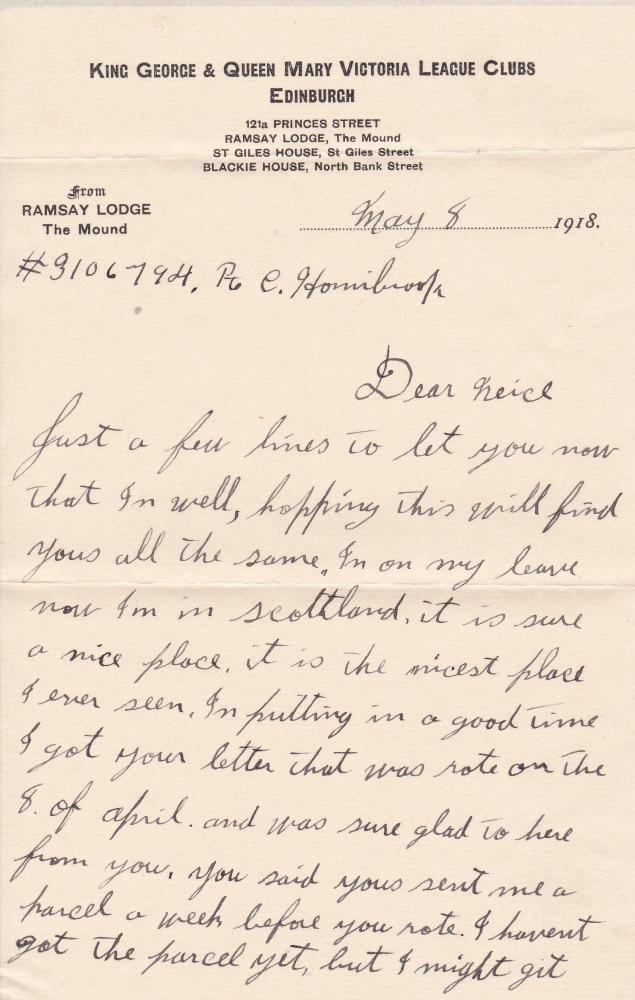 KING GEORGE & QUEEN MARY VICTORIA LEAGUE CLUBS
EDINBURGH
121a PRINCES STREET
RAMSAY LODGE, The Mound
ST GILES HOUSE, St Giles Street
BLACKIE HOUSE, North Bank Street
From
RAMSAY LODGE
The Mound
May 8 1918.
#3106794. Pte C. Hornibrook
Dear Neice
Just a few lines to let you now
that Im well, hopping this will find
yous all the same. Im on my leave
now Im in scottland. it is sure
a nice place. it is the nicest place
I ever seen. Im putting in a good time
I got your letter that was rote on the
8. of april. and was sure glad to here
from you. you said yous sent me a
parcel a week before you rote. I havent
got the parcel yet, but I might git